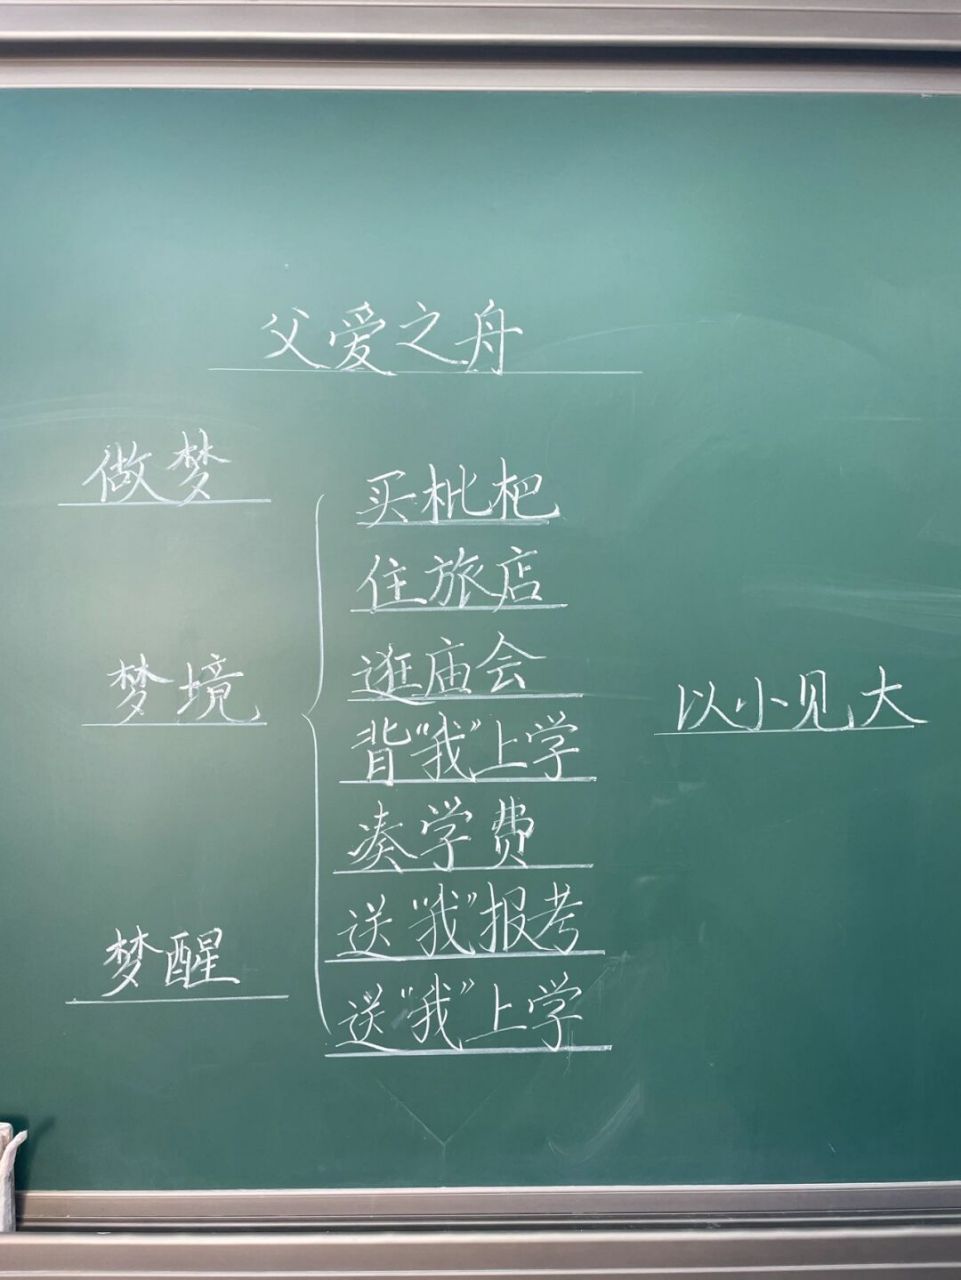 父爱之舟
做梦
梦境
梦醒
买枇杷
住旅店
逛庙会
背“我”上学
凑学费
送“我”报考
送“我”上学
以小见大